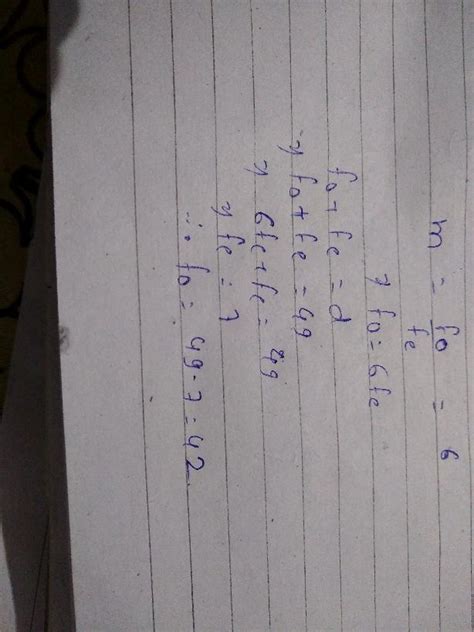 m = fo/fe = 6
⇒ fo = 6fe
fo + fe = d
⇒ fo + fe = 49
⇒ 6fe + fe = 49
⇒ fe = 7
∴ fo = 49 - 7 = 42